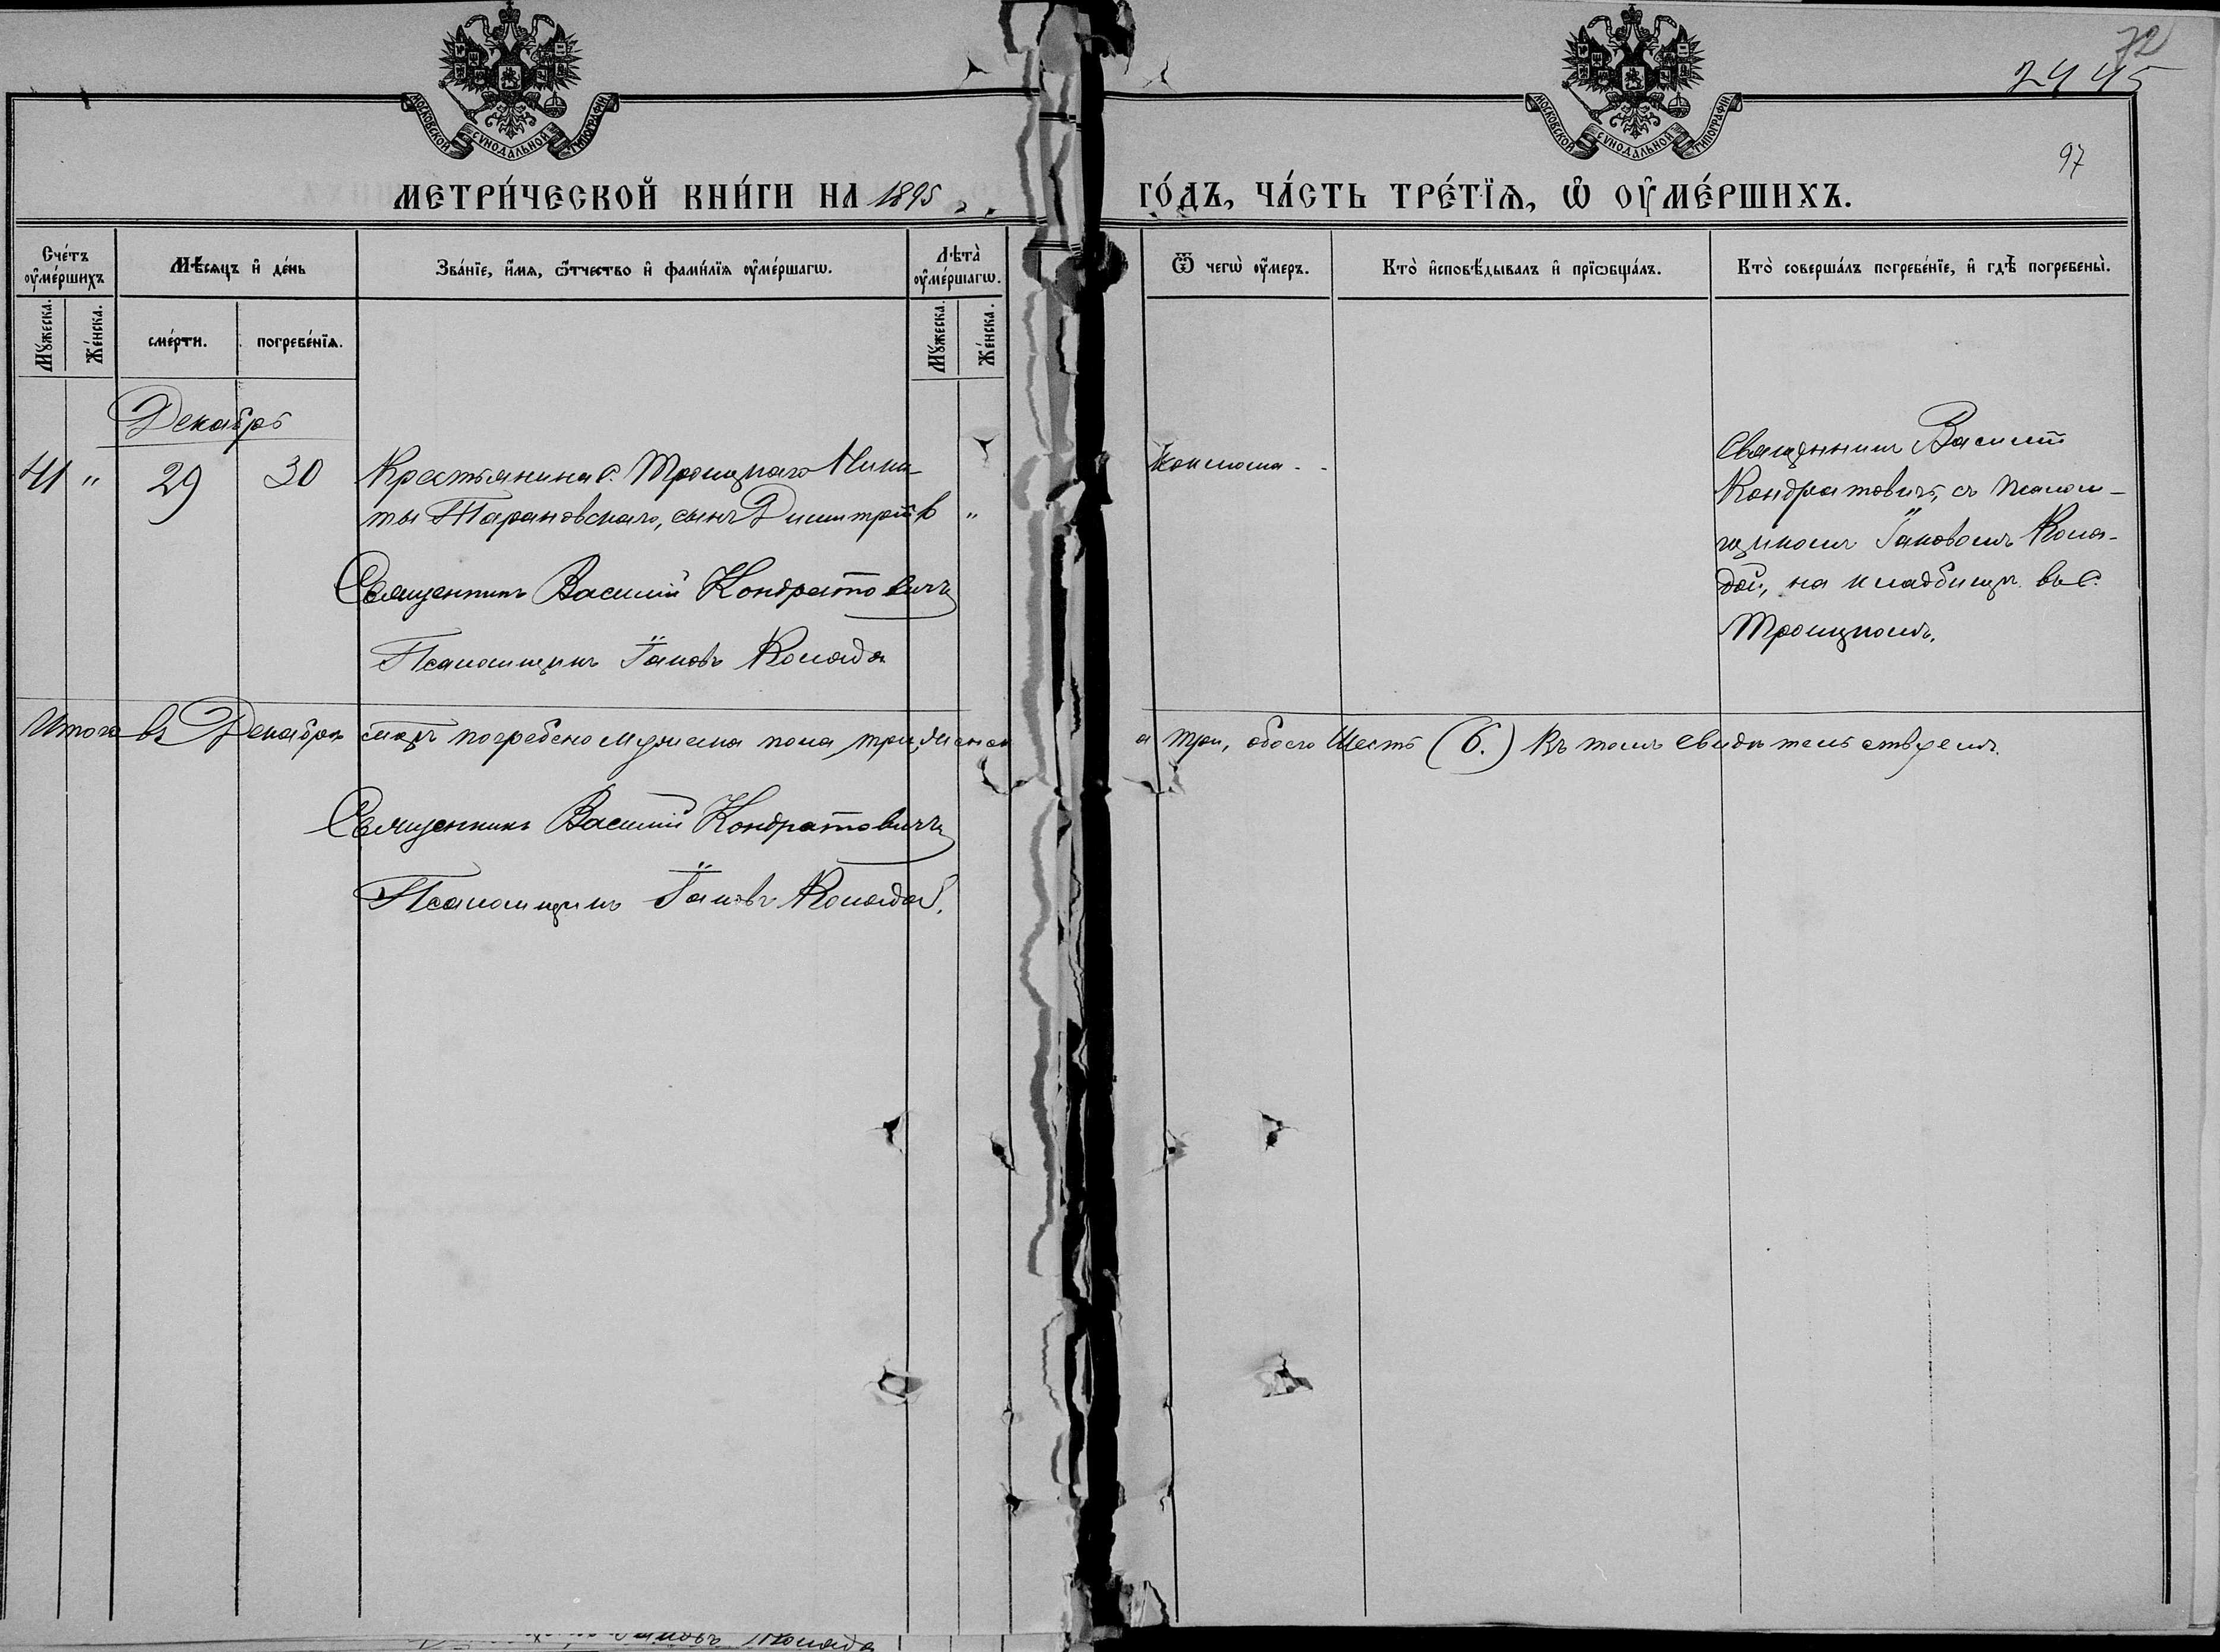 МОСКОВСКОЙ СѴНОДАЛЬНОЙ ТИПОГРАФІИ
МОСКОВСКОЙ СѴНОДАЛЬНОЙ ТИПОГРАФІИ
72
2445
97
МЕТРИ́ЧЕСКОЙ КНИ́ГИ НА 1895
ГО́ДЪ, ЧА́СТЬ ТРЕ́ТЇѦ, Ѽ ОУ҆МЕ́РШИХЪ.
Сче́тъ оу҆ме́ршихъ
Мѣ́сяцъ и҆ де́нь
Зва́нїе, и҆́мя, ѻ҆́тчество и҆ фами́лїя оу҆ме́ршагѡ.
Лѣта̀ оу҆ме́ршагѡ.
Ѿ чегѡ̀ оу҆́меръ.
Кто̀ и҆сповѣ́дывалъ и҆ прїѡбща́лъ.
Кто̀ соверша́лъ погребе́нїе, и҆ гдѣ̀ погребены̀.
Му́жеска.
Же́нска.
сме́рти.
погребе́нїя.
Му́жеска.
Же́нска.
Декабрь
41 " 29 30 Крестьянина с. Троицкаго Ники-
ты Тарановскаго, сынъ Димитрій "
Священникъ Василій Кондратовичъ
Псаломщикъ Іаковъ Коляда
Священникъ Василій
Кондратовичъ, съ псалом-
щикомъ Іаковомъ Коля-
дой, на кладбищѣ въ с.
Троицкомъ.
Итого въ Декабрѣ мѣсяцѣ погребено мужеска пола три, женск
а три, обоего шесть (6.) Въ томъ свидѣтельствуемъ.
Священникъ Василій Кондратовичъ
Псаломщикъ Іаковъ Коляда.